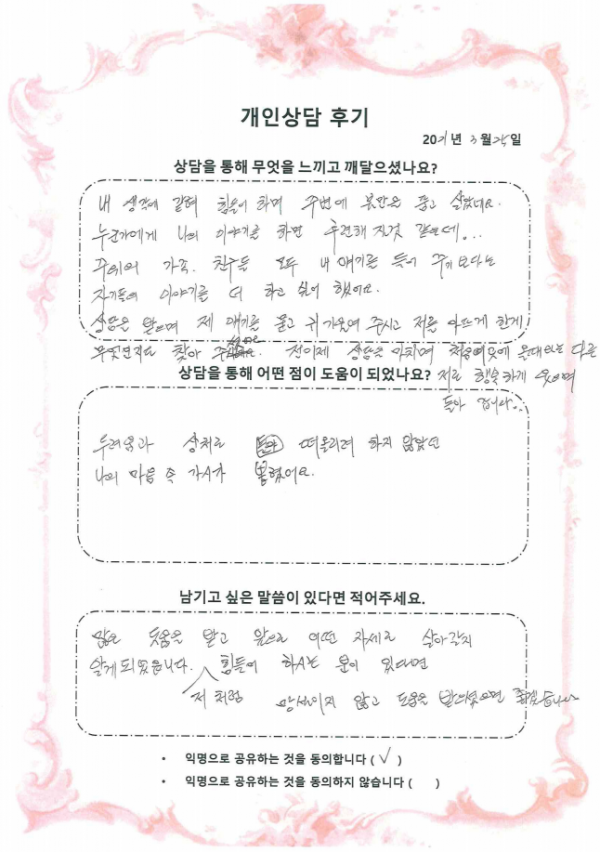 개인상담 후기
2021년 3월 25일
상담을 통해 무엇을 느끼고 깨달으셨나요?
내 생각에 갇혀 힘들어 하며 주변에 불만을 품고 살았네요.
누군가에게 나의 이야기를 하면 후련해 질것 같은데...
주위의 가족. 친구들 모두 내 얘기를 들어 주기 보다는
자기들의 이야기를 더 하고 싶어 했어요.
상담을 받으며 제 얘기를 묻고 귀 기울여 주시고 저를 아프게 한게
무엇인지도 찾아 주셨어요. 전 이제 상담을 마치며 처음 왔을때와는 다른
저로 행복하게 웃으며
돌아 갑니다..
상담을 통해 어떤 점이 도움이 되었나요?
두려움과 상처로 떠올리려 하지 않았던
나의 마음 속 가시가 뽑혔어요.
남기고 싶은 말씀이 있다면 적어주세요.
많은 도움을 받고 앞으로 어떤 자세로 살아갈지
알게 되었습니다. 힘들어 하시는 분이 있다면
저 처럼 망설이지 않고 도움을 받으셨으면 좋겠습니다
• 익명으로 공유하는 것을 동의합니다 ( √ )
• 익명으로 공유하는 것을 동의하지 않습니다 ( )